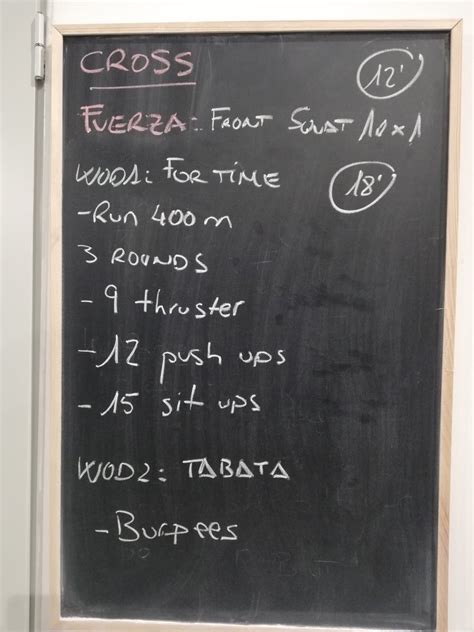 CROSS
12'
FUERZA: FRONT SQUAT 10x1
WOD1: FOR TIME
18'
-RUN 400m
3 ROUNDS
- 9 thruster
-12 push ups
-15 sit ups
WOD2: TABATA
-Burpees